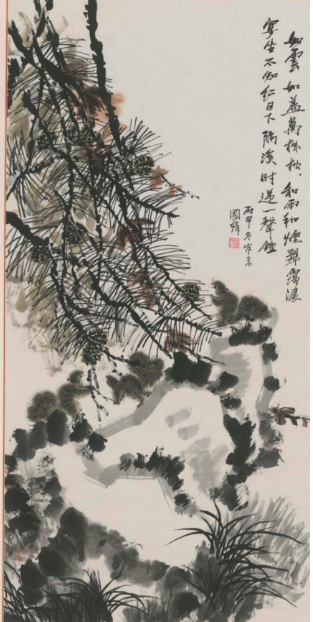 如雲如蓋萬株松、和雨和煙翠靄濃
宴坐不知紅日下隔溪時送一聲鐘
丙申冬作
國